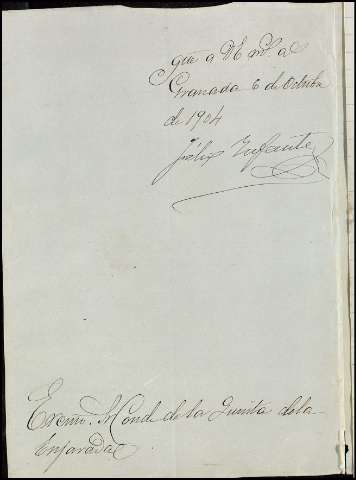 gue a VE ms. as
Granada 6 de Octubre
de 1904
Félix Infante
Excmo. Sr Conde de la Quinta de la
Enjarada